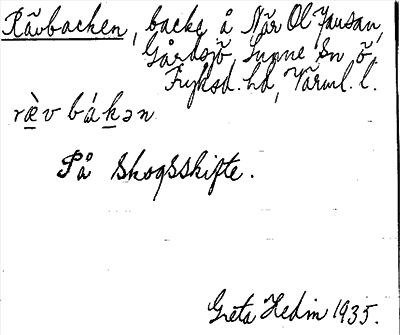 Rävbacken, backe å När Ol Jansan,
Gårdsjö, Sunne Sn ö.
Fryksd. hd, Värml. l.
ræ̀v bákən
På Skogsskifte.
Greta Hedin 1935.